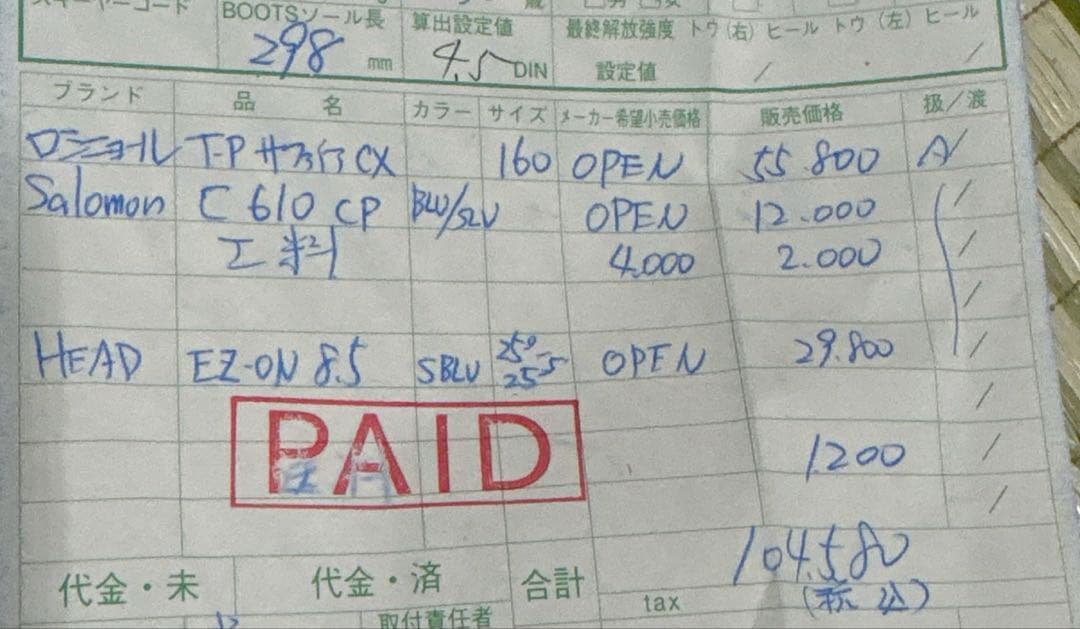 スキーヤーコード BOOTSソール長 算出設定値 最終解放強度 トウ(右) ヒール トウ(左) ヒール
298 mm 4.5 DIN 設定値 / /
ブランド 品名 カラー サイズ メーカー希望小売価格 販売価格 扱/渡
ロシニョール T-P サファイヤ CX 160 OPEN 55.800 A/
Salomon C 610 CP BLU/SLV OPEN 12.000 /
工料 4.000 2.000 /
/
HEAD EZ-ON 8.5 SBLU 250-255 OPEN 29.800 /
/
PAID 1.200 /
/
104.580
代金・未 代金・済 合計 tax (税込)
取付責任者